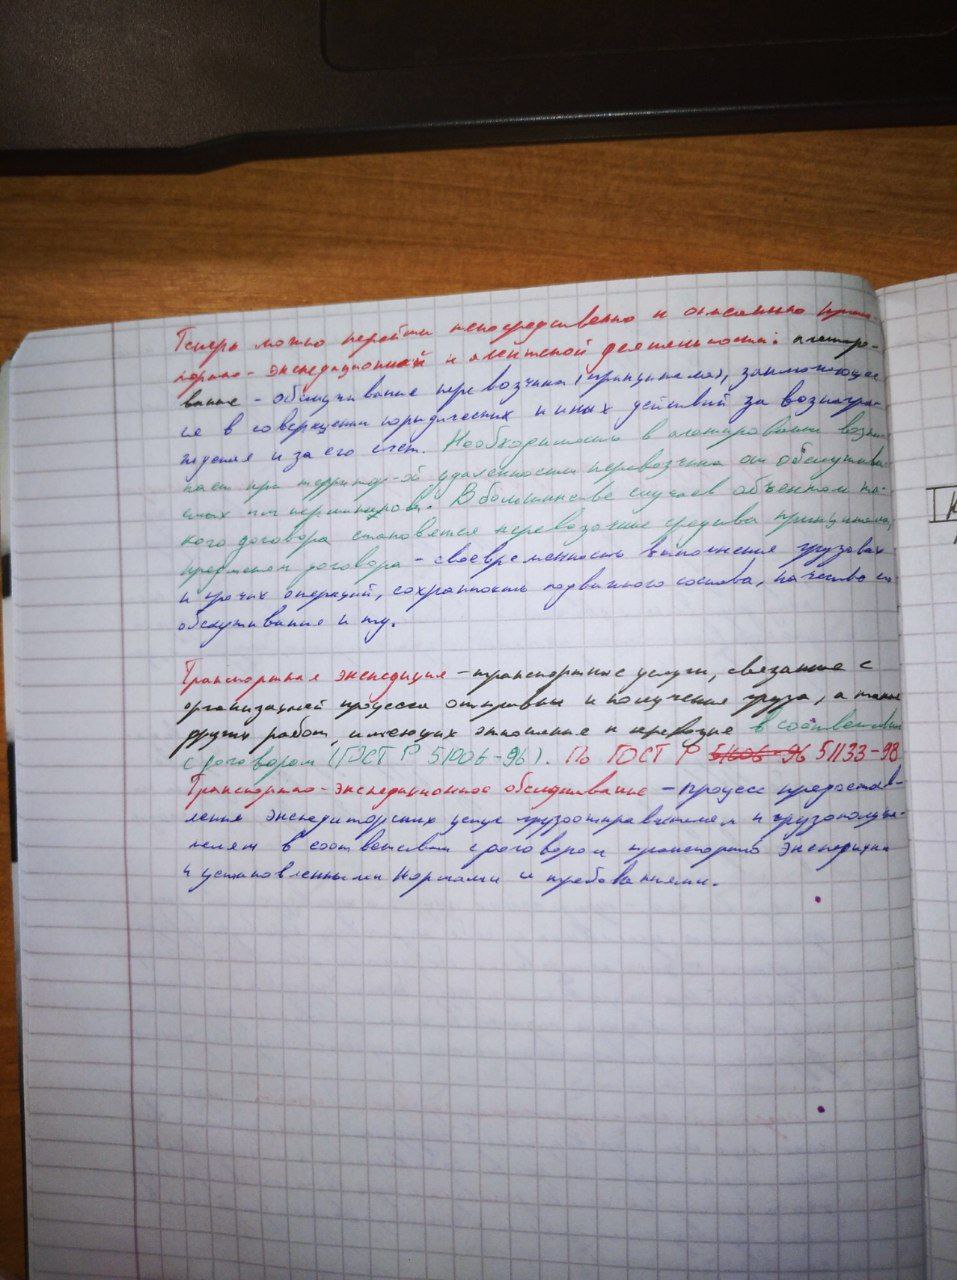 Теперь можно перейти непосредственно к описанию транс-
портно-экспедиционной и агентской деятельности: агентиро-
вание - обслуживание перевозчика (принципала), заключающее
ся в совершении юридических и иных действий за вознагра-
ждения и за его счет. Необходимость в агентировании возни
кает при территор-ой удаленности перевозчика от обслужива
емых им терминалов. В большинстве случаев объектом та-
кого договора становятся перевозочные средства принципала,
предметом договора - своевременность выполнения грузовых
и прочих операций, сохранность подвижного состава, качество
обслуживания и тд.
Транспортная экспедиция - транспортные услуги, связанные с
организацией процесса отправки и получения груза, а также
других работ, имеющих отношение к перевозке в соответствии
с договором (ГОСТ Р 51006-96). По ГОСТ Р 51006-96 51133-98
Транспортно-экспедиционное обслуживание - процесс предостав-
ления экспедиторских услуг грузоотправителям и грузополуча-
телям в соответствии с договором транспортно экспедиции
и установленными нормами и требованиями.